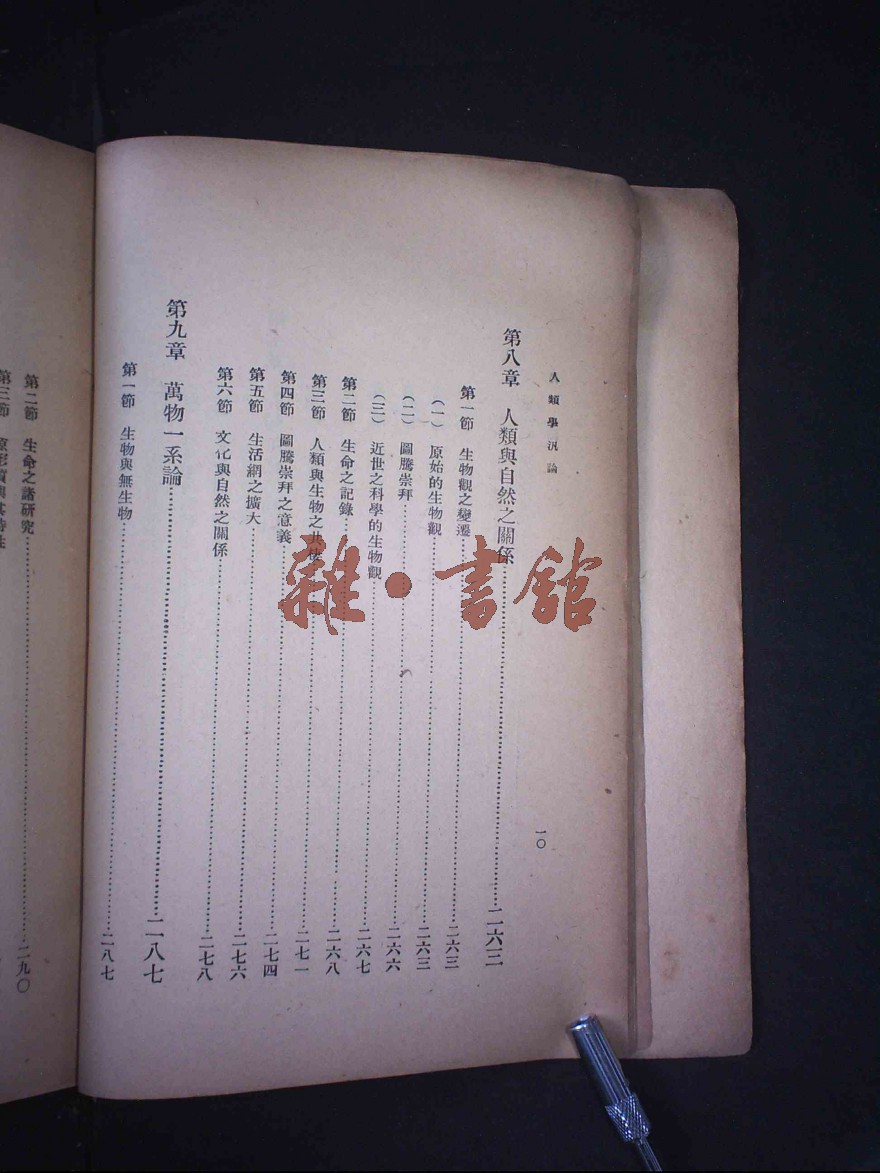 人類學汎論
一〇
第八章　人類與自然之關係……二六三
第一節　生物觀之變遷……二六三
（一）原始的生物觀……二六三
（二）圖騰崇拜……二六六
（三）近世之科學的生物觀……二六七
第二節　生命之記錄……二六八
第三節　人類與生物之共……二七一
第四節　圖騰崇拜之意義……二七四
第五節　生活網之擴大……二七六
第六節　文化與自然之關係……二七八
第九章　萬物一系論……二八七
第一節　生物與無生物……二八七
第二節　生命之諸研究……二九〇
第三節
雜·書館